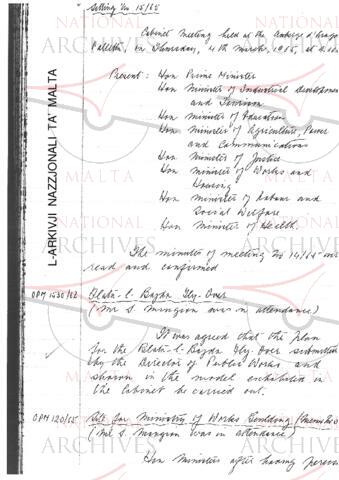 Sitting No 15/65
Cabinet meeting held at the Auberge d'Aragon
Valletta, on Thursday, 4th March, 1965, at
Present: Hon Prime Minister
Hon Minister of Industrial Development
and Tourism
Hon Minister of Education
Hon Minister of Agriculture, Power
and Communications
Hon Minister of Justice
Hon Minister of Works and
Housing
Hon Minister of Labour and
Social Welfare
Hon Minister of Health.
The minutes of meeting No 14/65 were
read and confirmed
OPM 1530/62 Blata-l-Bajda Fly-Over
(Mr S. Mangion was in attendance)
It was agreed that the plan
for the Blata-l-Bajda Fly-Over submitted
by the Director of Public Works and
shown in the model exhibited in
the Cabinet be carried out.
OPM 120/65 for Ministry of Works Building
(Mr S. Mangion was in attendance)
Hon Ministers after having
L-ARKIVJI NAZZJONALI TA' MALTA
NATIONAL
ARCHIVES
MALTA